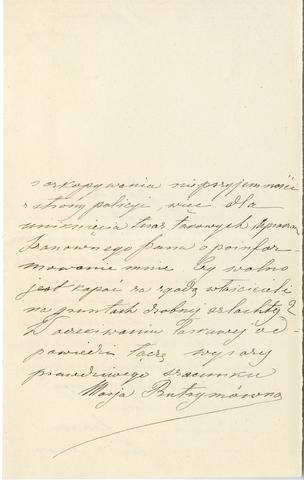 rozkopywania nieprzyjemności
z strony policji, więc dla
uniknięcia teraz takowych upraszam
Szanownego pana o poinfor-
mowanie mnie, czy wolno
jest kopać za zgodą właścicieli
na gruntach drobnej szlachty?
W oczekiwaniu łaskawej od-
powiedzi łączę wyrazy
prawdziwego szacunku
Marja Butrymówna